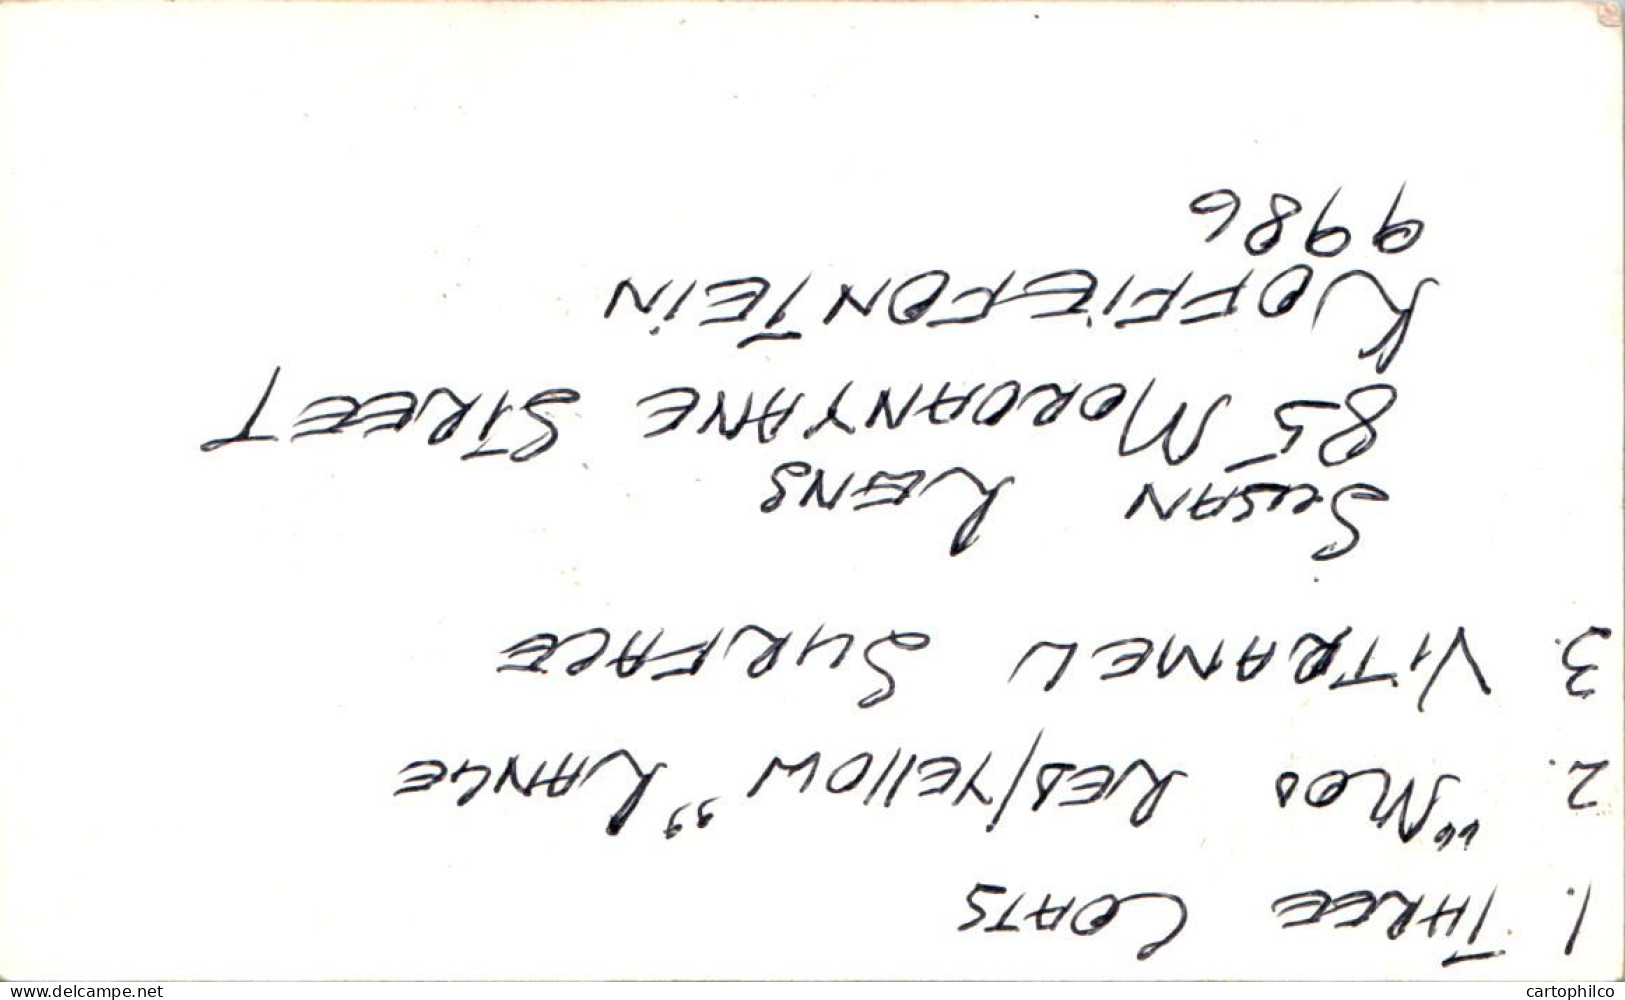 1. THREE COATS
2. "MOD RED/YELLOW" RANGE
3. VITRAMEL SURFACE
SUSAN RENS
85 MOROANYANE STREET
KOFFIEFONTEIN
9986
www.delcampe.net
cartophilco